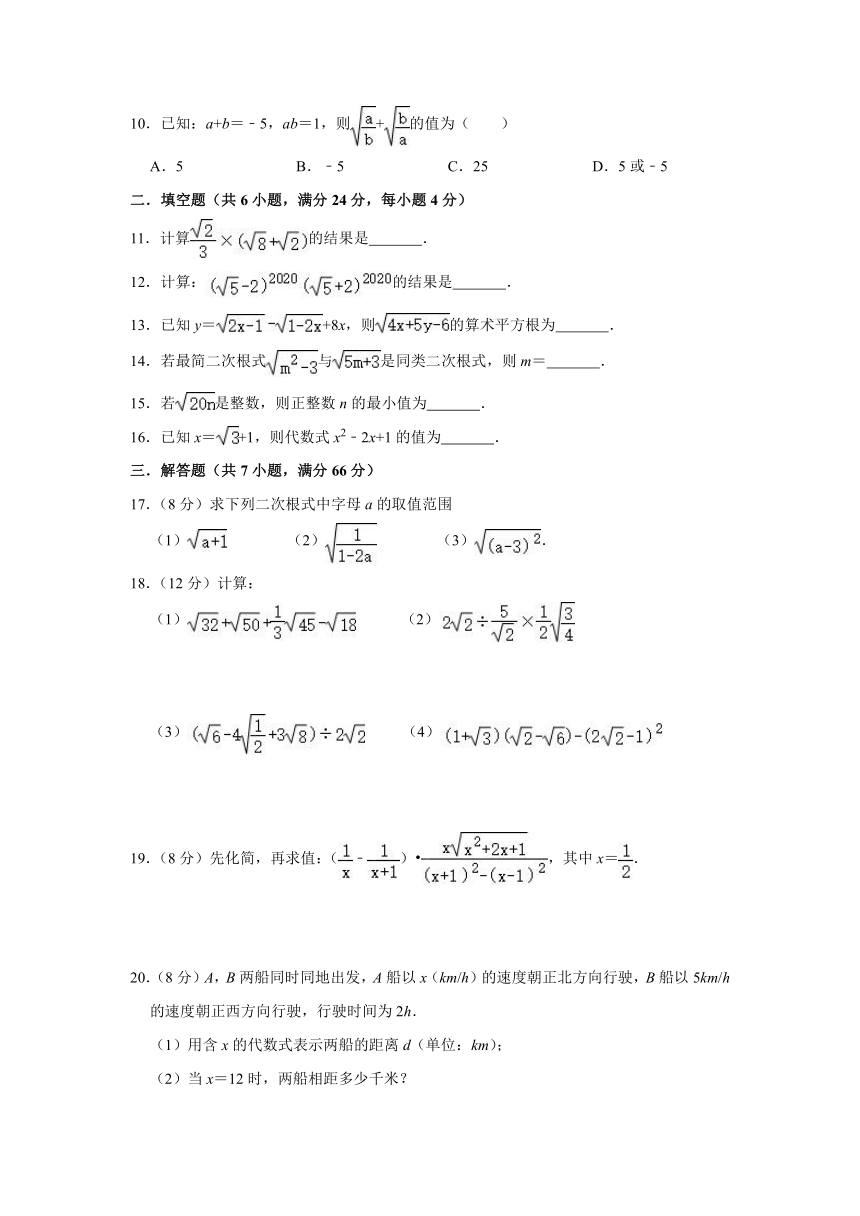 10．已知：a+b＝﹣5，ab＝1，则√(a/b)+√(b/a)的值为（　　）
A．5　B．﹣5　C．25　D．5 或﹣5
二．填空题（共 6 小题，满分 24 分，每小题 4 分）
11．计算√2/3×(√8+√2)的结果是　　．
12．计算：(√5-2)^2020 (√5+2)^2020的结果是　　．
13．已知 y＝√(2x-1)-√(1-2x)+8x，则√(4x+5y-6)的算术平方根为　　．
14．若最简二次根式√(m²-3)与√(5m+3)是同类二次根式，则 m＝　　．
15．若√(20n)是整数，则正整数 n 的最小值为　　．
16．已知 x＝√3+1，则代数式 x²﹣2x+1 的值为　　．
三．解答题（共 7 小题，满分 66 分）
17．（8 分）求下列二次根式中字母 a 的取值范围
（1）√(a+1)　（2）√(1/(1-2a))　（3）√((a-3)²)．
18．（12 分）计算：
（1）√32+√50+1/3√45-√18　（2）2√2÷5/√2×1/2√(3/4)
（3）(√6-4√(1/2)+3√8)÷2√2　（4）(1+√3)(√2-√6)-(2√2-1)²
19．（8 分）先化简，再求值：（1/x﹣1/(x+1)）•x√(x²+2x+1)/((x+1)²-(x-1)²)，其中 x＝1/2．
20．（8 分）A，B 两船同时同地出发，A 船以 x（km/h）的速度朝正北方向行驶，B 船以 5km/h
的速度朝正西方向行驶，行驶时间为 2h．
（1）用含 x 的代数式表示两船的距离 d（单位：km）；
（2）当 x＝12 时，两船相距多少千米？